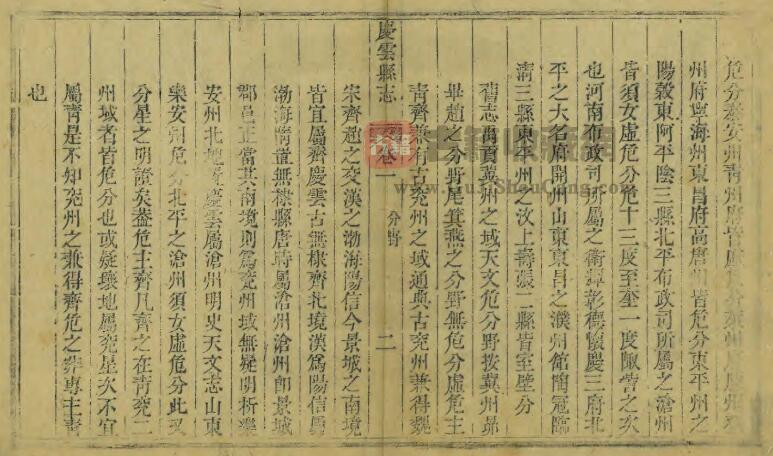 危分泰安州青州府皆
州府寧海州東昌府高唐 皆危分東平州之
陽穀東阿平陰三縣北平布政司所屬之滄州
皆須女虛危分危十三度至奎一度陬訾之次
也河南布政司所屬之衛輝彰德懷慶三府北
平之大名府開州山東東昌之濮州館陶冠臨
清三縣東平州之汶上壽張二縣皆室壁分
舊志禹貢冀州之域天文危分野按冀州昴
畢趙之分野尾箕燕之分野無危分虛危主
青齊兼有古兖州之域通典古兖州兼得魏
慶雲縣志 卷一 分野 二
宋齊趙之交漢之渤海陽信今景城之南境
皆宜屬齊慶雲古無棣齊北境漢爲陽信屬
渤海隋置無棣縣唐時屬滄州滄州卽景城
郡邑正當其南境則爲兖州域無疑明析樂
安州北地 慶雲屬滄州明史天文志山東
樂安州危分北平之滄州須女虛危分此又
分星之明證矣蓋危主齊凡齊之在青兖二
州域者皆危分也或疑壤地屬兖星次不宜
屬靑是不知兖州之兼得齊危之非專主靑
也